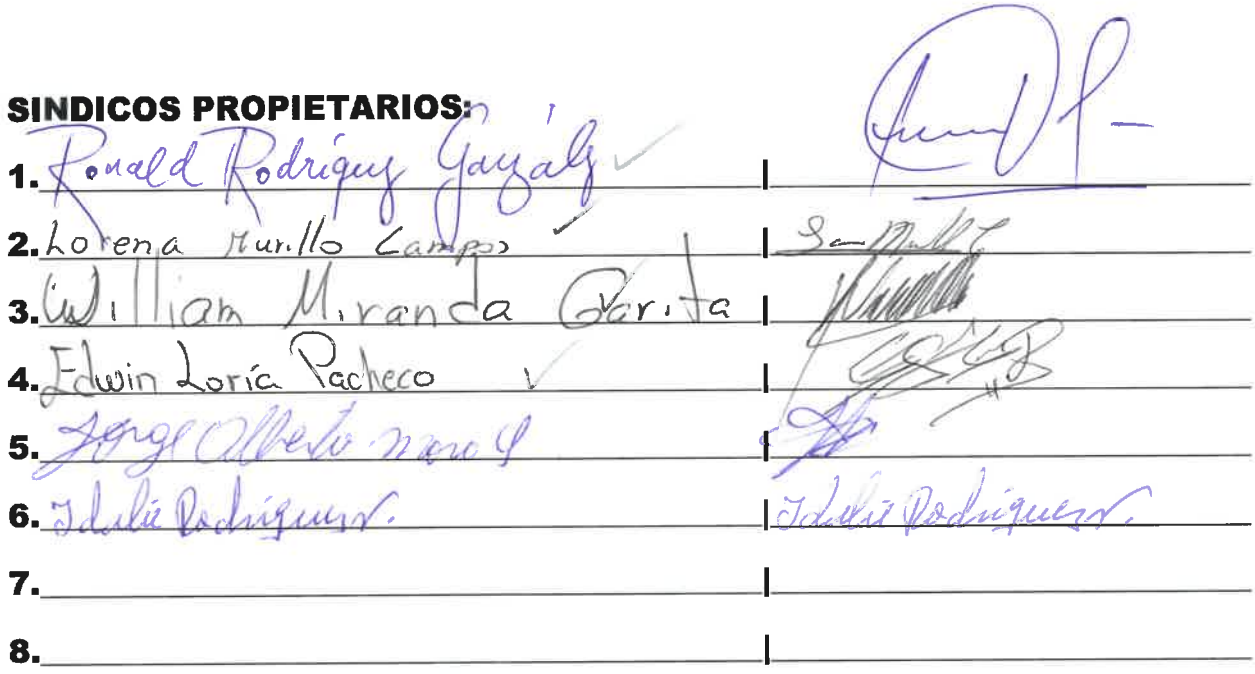 SINDICOS PROPIETARIOS:
1. Ronald Rodríguez González
2. Lorena Murillo Campos
3. William Miranda Garita
4. Edwin Loría Pacheco
5. Jorge Alberto
6. Idalie Rodriguez
Idalie Rodriguez
7.
8.